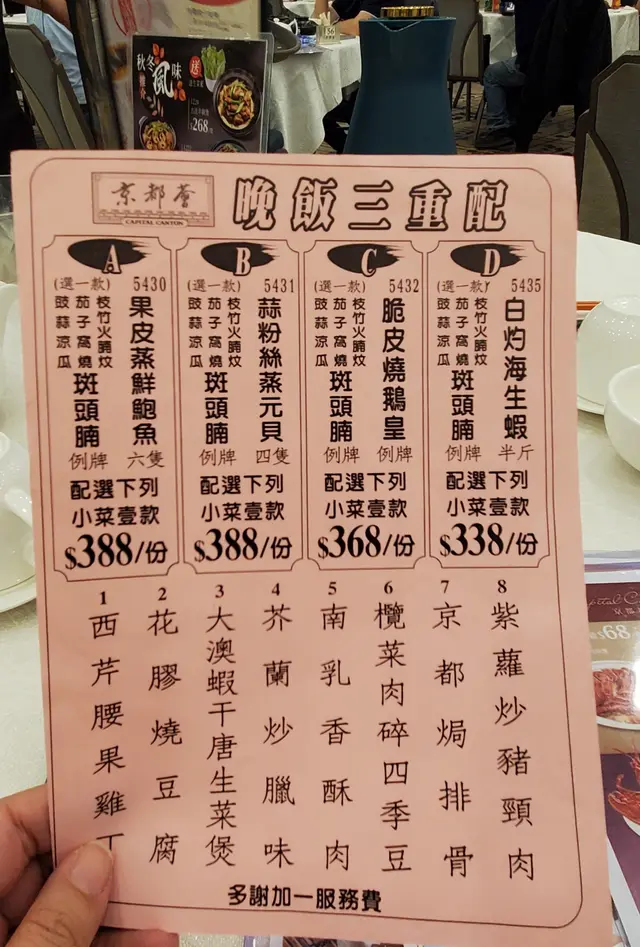 秋冬風味
推介
送
$268
京都薈
CAPITAL CANTON
晚飯三重配
A
(選一款)
5430
果皮蒸鮮鮑魚
六隻
枝竹火腩炆
茄子窩燒
豉蒜涼瓜
斑頭腩
例牌
配選下列
小菜壹款
$388/份
B
(選一款)
5431
蒜粉絲蒸元貝
四隻
枝竹火腩炆
茄子窩燒
豉蒜涼瓜
斑頭腩
例牌
配選下列
小菜壹款
$388/份
C
(選一款)
5432
脆皮燒鵝皇
例牌
枝竹火腩炆
茄子窩燒
豉蒜涼瓜
斑頭腩
例牌
配選下列
小菜壹款
$368/份
D
(選一款)
5435
白灼海生蝦
半斤
枝竹火腩炆
茄子窩燒
豉蒜涼瓜
斑頭腩
例牌
配選下列
小菜壹款
$338/份
1
西芹腰果雞丁
2
花膠燒豆腐
3
大澳蝦干唐生菜煲
4
芥蘭炒臘味
5
南乳香酥肉
6
欖菜肉碎四季豆
7
京都焗排骨
8
紫蘿炒豬頸肉
多謝加一服務費
$68